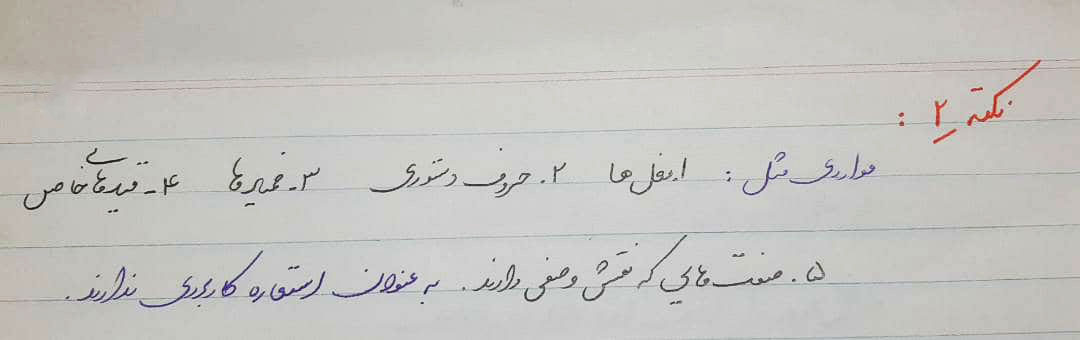 نکته ۲ :
مواردی مثل : ۱. فعل ها ۲. حروف دستوری ۳- ضمیرها ۴- قیدهای خاص
۵. صفت هایی که نقش وصفی دارند. به عنوان استعاره کاربردی ندارند.